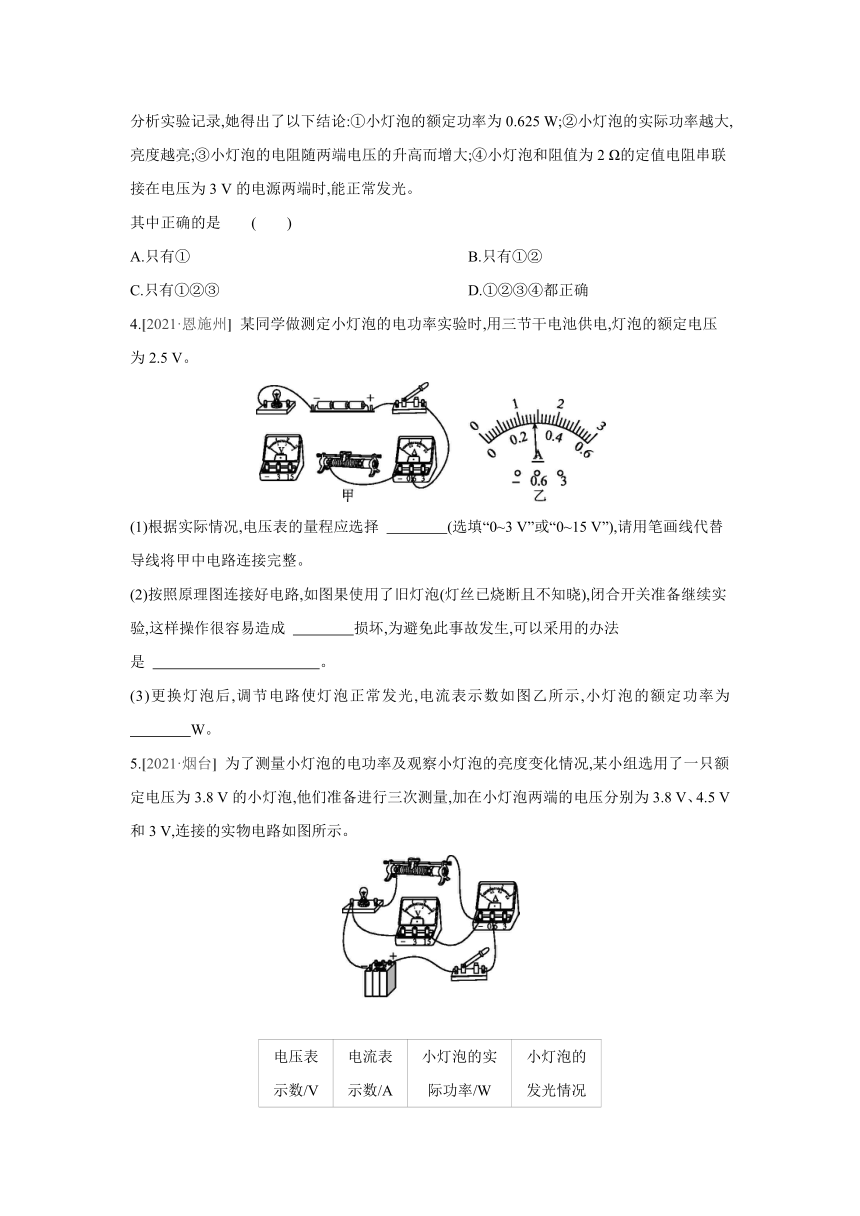 分析实验记录,她得出了以下结论:①小灯泡的额定功率为 0.625 W;②小灯泡的实际功率越大,
亮度越亮;③小灯泡的电阻随两端电压的升高而增大;④小灯泡和阻值为 2 Ω的定值电阻串联
接在电压为 3 V 的电源两端时,能正常发光。
其中正确的是 ( )
A.只有① B.只有①②
C.只有①②③ D.①②③④都正确
4.[2021·恩施州] 某同学做测定小灯泡的电功率实验时,用三节干电池供电,灯泡的额定电压
为 2.5 V。
- +
V
- 3 15
A
- 0.6 3
甲
0 1 2 3
0 0.2 0.4 0.6
A
- 0.6 3
乙
(1)根据实际情况,电压表的量程应选择 ________(选填“0~3 V”或“0~15 V”),请用笔画线代替
导线将甲中电路连接完整。
(2)按照原理图连接好电路,如图果使用了旧灯泡(灯丝已烧断且不知晓),闭合开关准备继续实
验,这样操作很容易造成 ________损坏,为避免此事故发生,可以采用的办法
是 ______________________ 。
(3)更换灯泡后,调节电路使灯泡正常发光,电流表示数如图乙所示,小灯泡的额定功率为
________W。
5.[2021·烟台] 为了测量小灯泡的电功率及观察小灯泡的亮度变化情况,某小组选用了一只额
定电压为 3.8 V 的小灯泡,他们准备进行三次测量,加在小灯泡两端的电压分别为 3.8 V、4.5 V
和 3 V,连接的实物电路如图所示。
A
- 0.6 3
V
- 3 15
- +
电压表 电流表 小灯泡的实 小灯泡的
示数/V 示数/A 际功率/W 发光情况